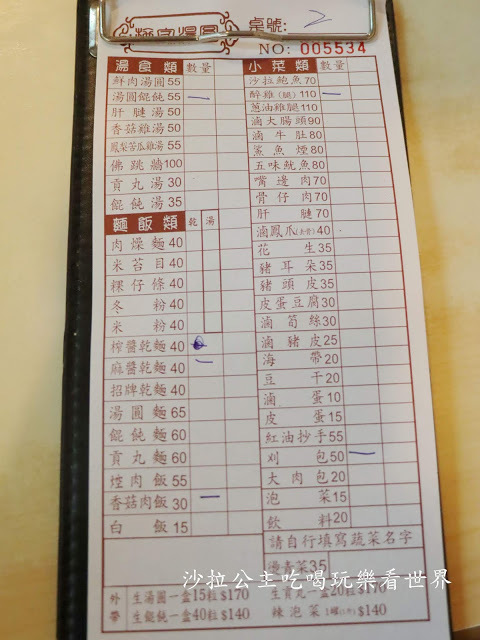 桌號: 2
NO: 005534
湯食類 數量
鮮肉湯圓 55
湯圓餛飩 55
肝腱湯 50
香菇雞湯 50
鳳梨苦瓜雞湯 55
佛跳牆 100
貢丸湯 30
餛飩湯 35
麵飯類 乾 湯
肉燥麵 40
米苔目 40
粿仔條 40
冬粉 40
米粉 40
榨醬乾麵 40
麻醬乾麵 40
招牌乾麵 40
湯圓麵 65
餛飩麵 60
貢丸麵 60
焢肉飯 55
香菇肉飯 30
白飯 15
小菜類 數量
沙拉鮑魚 70
醉雞(腿) 110
蔥油雞腿 110
滷大腸頭 90
滷牛肚 80
鯊魚煙 80
五味魷魚 80
嘴邊肉 70
骨仔肉 70
肝腱 70
滷鳳爪(去骨) 40
花生 35
豬耳朵 35
豬頭皮 35
皮蛋豆腐 30
滷筍絲 30
滷豬皮 25
海帶 20
豆干 20
滷蛋 10
皮蛋 15
紅油抄手 55
刈包 50
大肉包 20
泡菜 15
飲料 20
請自行填寫蔬菜名字
燙青菜 35
外帶
生湯圓一盒15粒$170
生餛飩一盒40粒$140
生貢丸一盒20粒$170
辣泡菜 $140
沙拉公主吃喝玩樂看世界